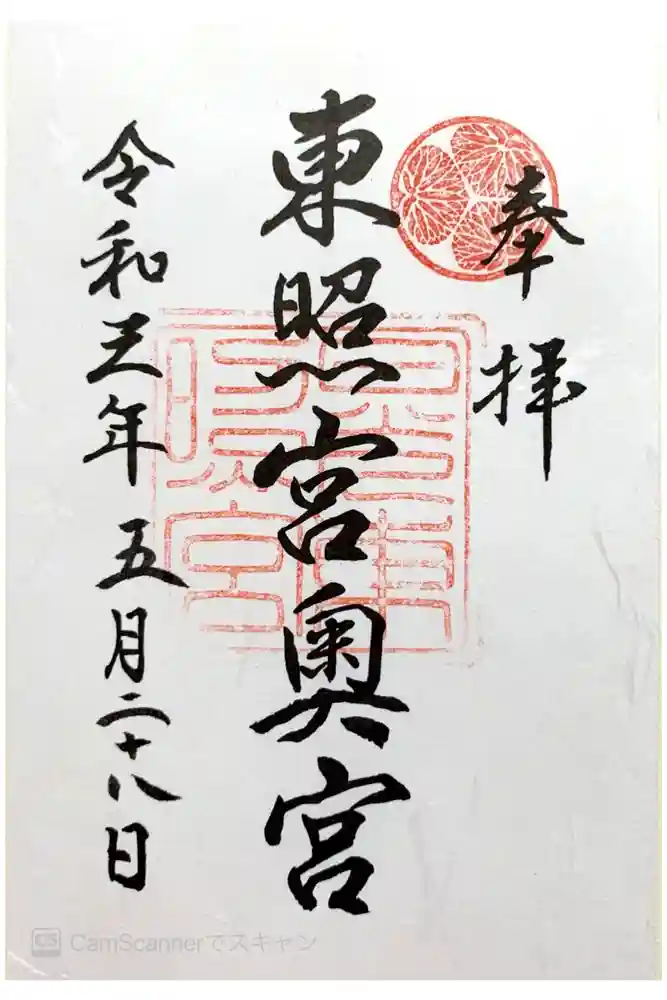 奉拝
東照宮奥宮
令和三年五月二十八日
CamScannerでスキャン